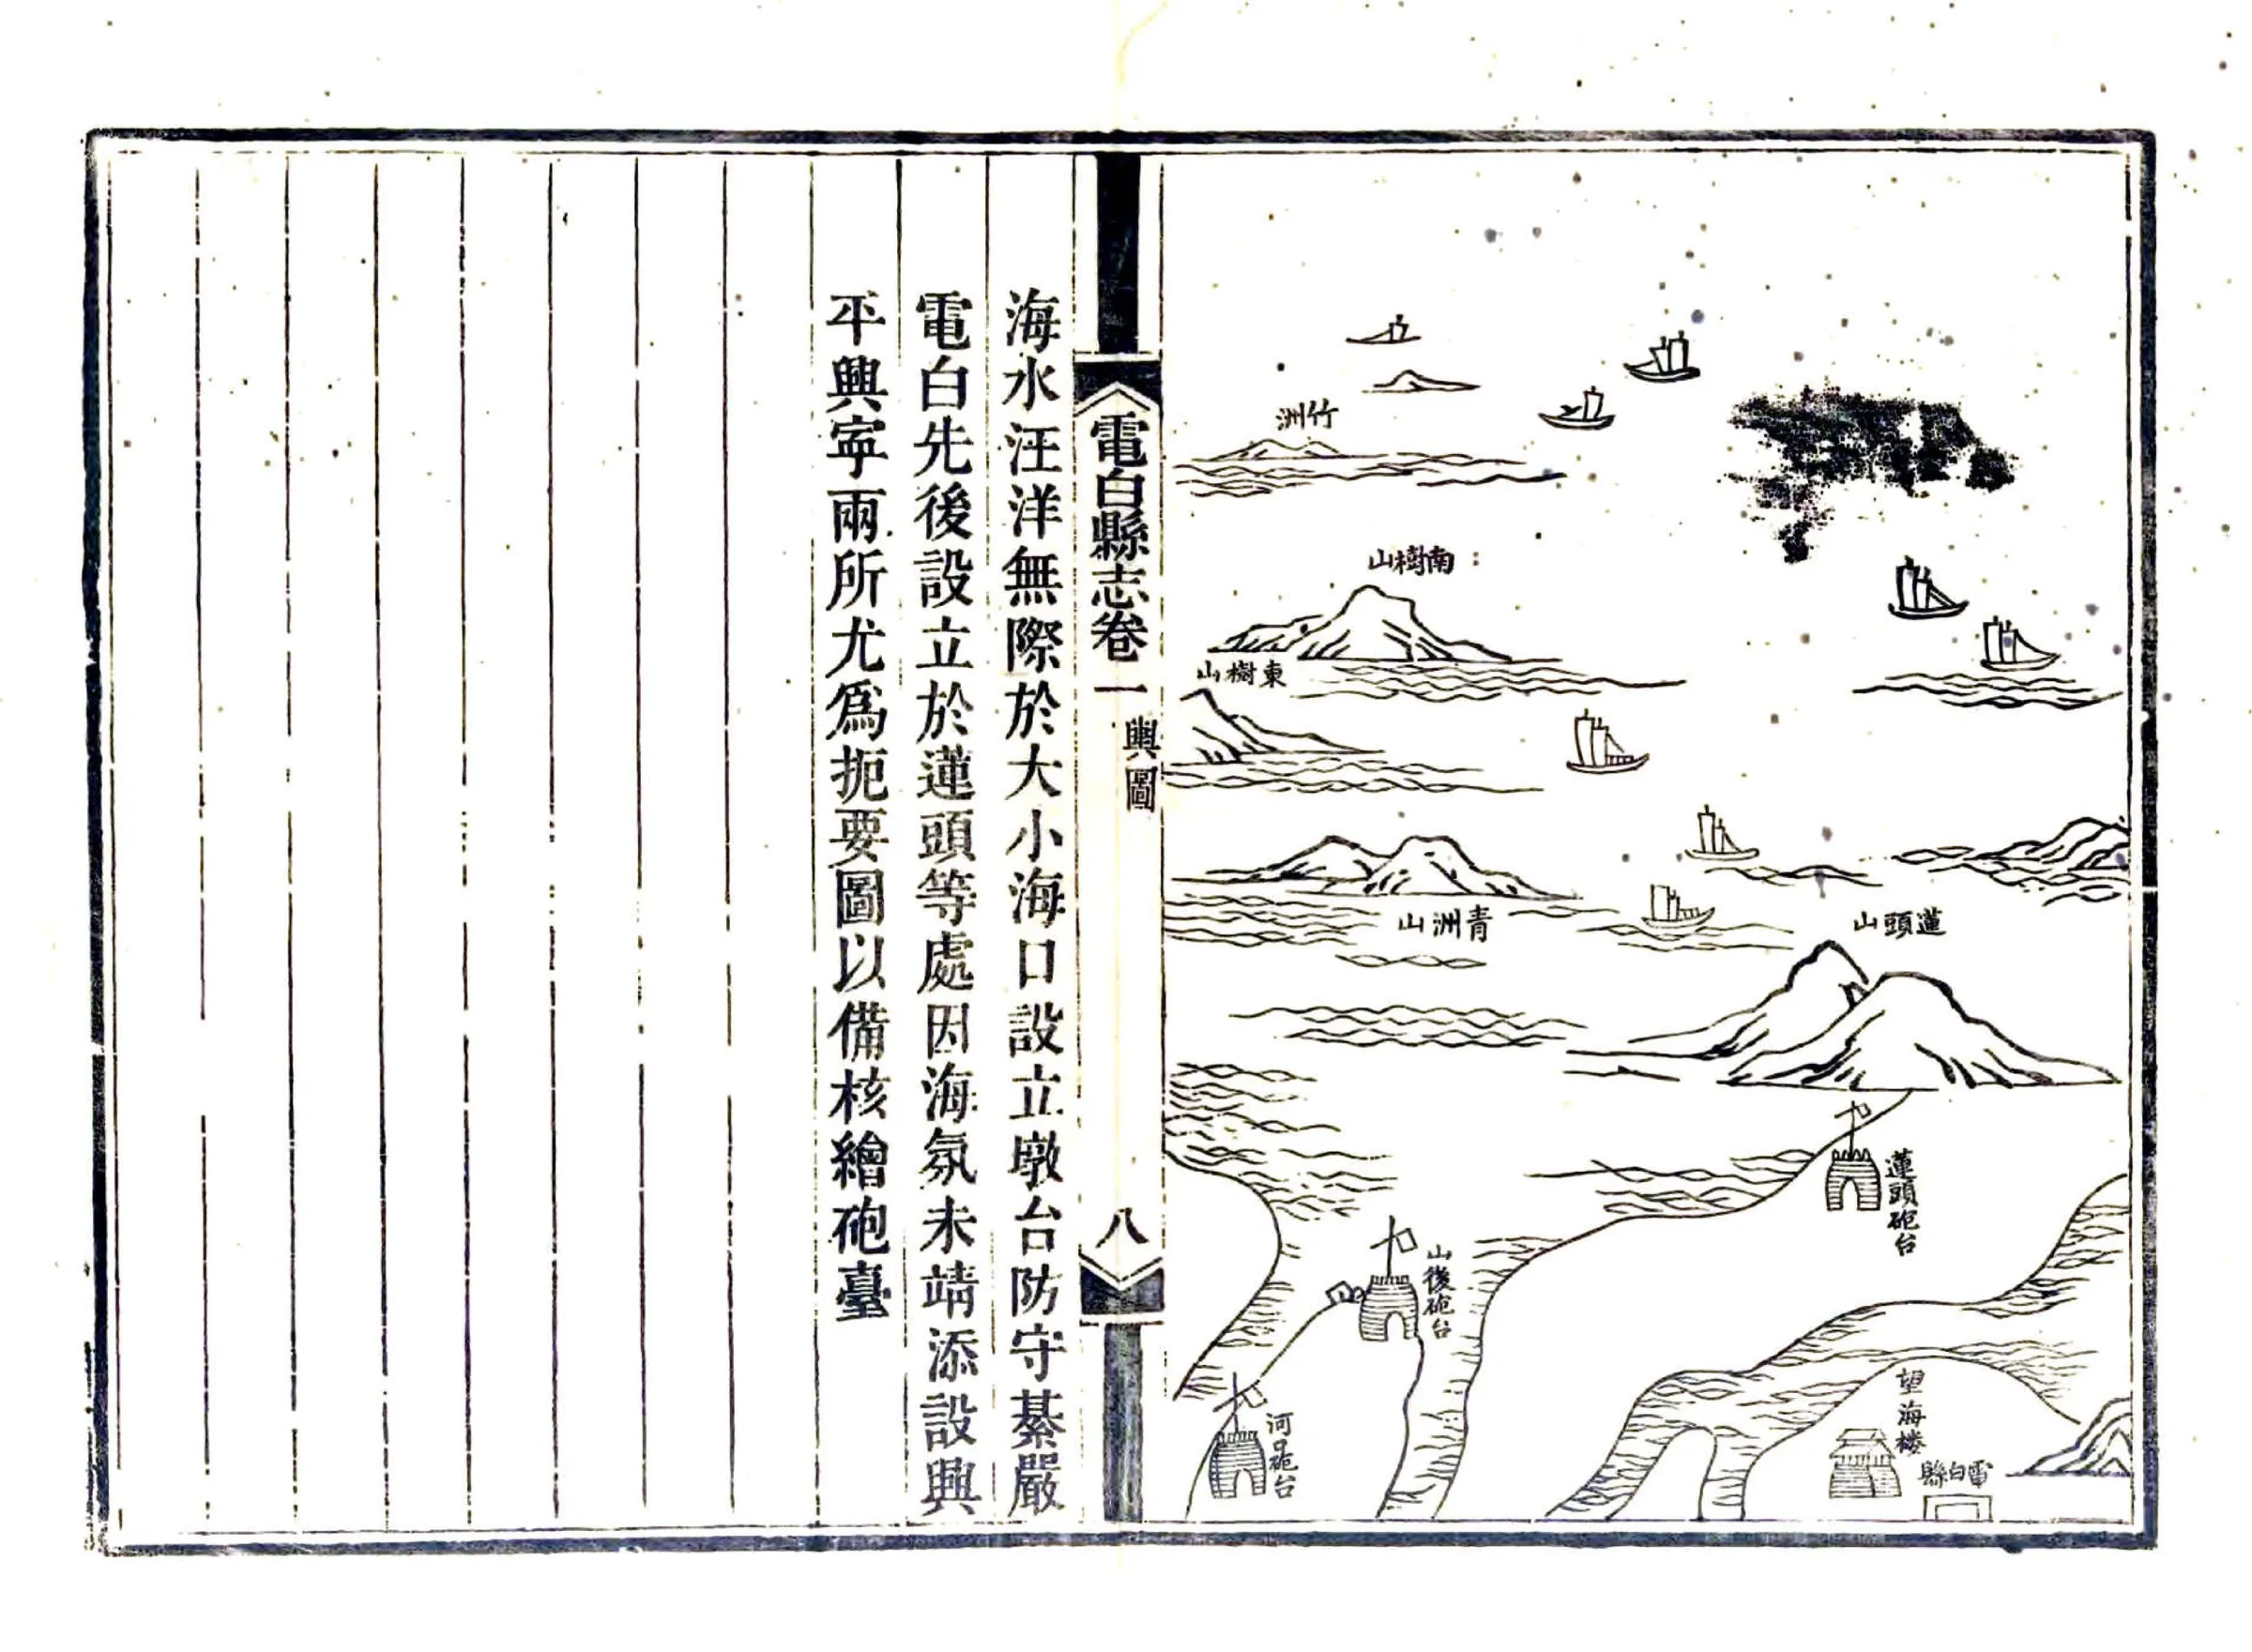 竹洲
南樹山
東樹山
青洲山
蓮頭山
蓮頭砲台
山後砲台
河口砲台
望海樓
電白縣
電白縣志卷一
輿圖
八
海水汪洋無際於大小海口設立墩台防守綦嚴
電白先後設立於蓮頭等處因海氛未靖添設興
平興寧兩所尤爲扼要圖以備核繪砲臺